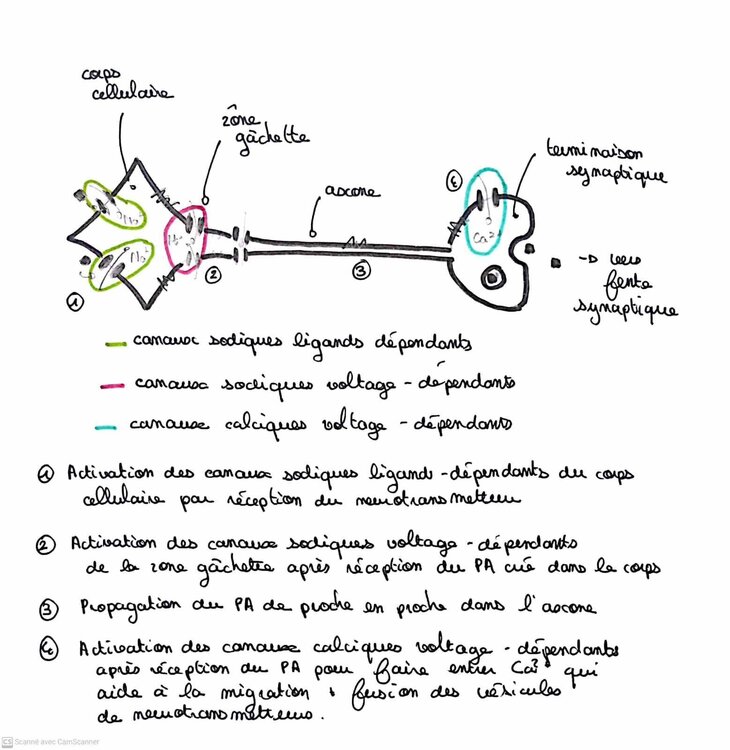 corps
cellulaire
zône
gâchette
axone
④
terminaison
synaptique
Na⁺
Na⁺
Na⁺
Ca²⁺
①
②
③
→ vers
fente
synaptique
canaux sodiques ligands dépendants
canaux sodiques voltage-dépendants
canaux calciques voltage-dépendants
① Activation des canaux sodiques ligand-dépendants du corps
cellulaire par réception du neurotransmetteur
② Activation des canaux sodiques voltage-dépendants
de la zone gâchette après réception du PA créé dans le corps
③ Propagation du PA de proche en proche dans l'axone
④ Activation des canaux calciques voltage-dépendants
après réception du PA pour faire entrer Ca²⁺ qui
aide à la migration + fusion des vésicules
de neurotransmetteurs.
CS Scanné avec CamScanner